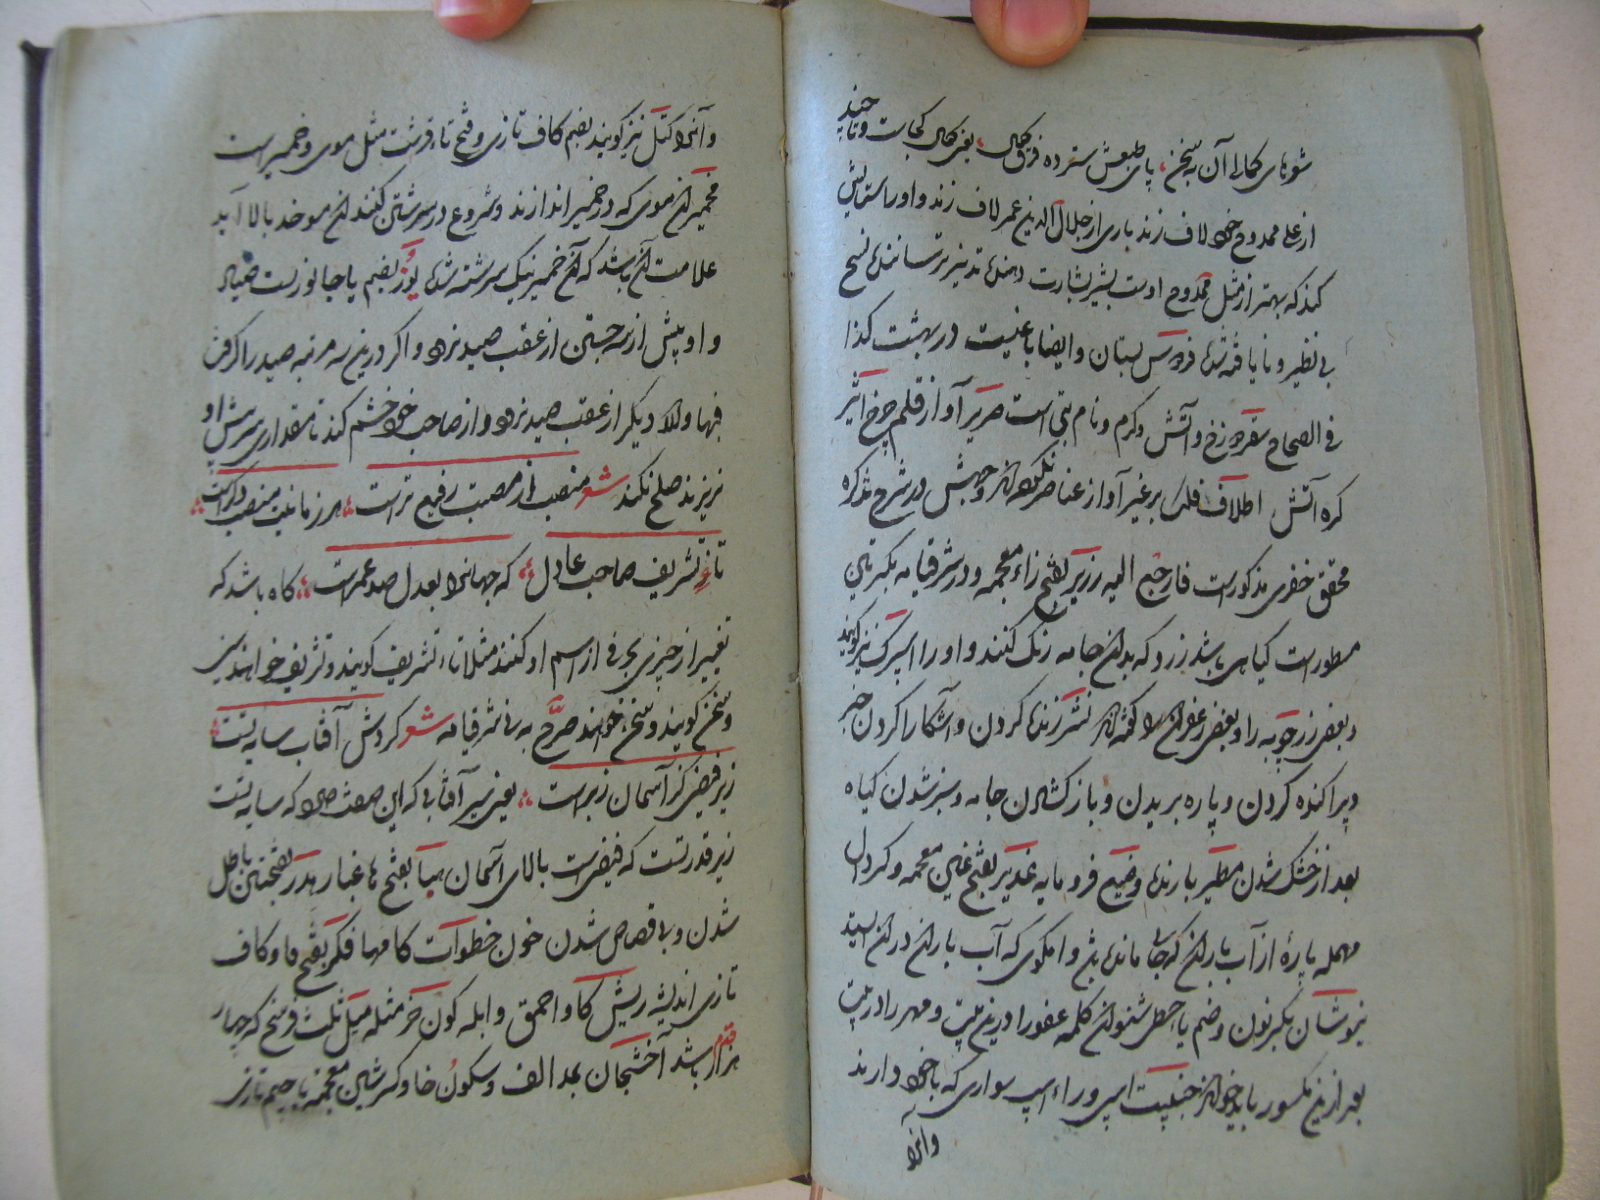 شو بهای کمال آن به سخن پای طبعش سپرده فرق کمال یعنی کمال کجاست و تا چند
از علی ممدوح خود لاف زند باری از جلال الدین عمر لاف زند و او را ستایش
کند که بهتر از مثل ممدوح اوست بشیر بشارت دهنده نذیر ترساننده نسیج
بی نظیر و نایافته شده فردوس بستان و ایضا باغیست در بهشت کذا
فی الصحاح سقر دوزخ و آتش و گرم و نام بتی است صریر آواز قلم چرخ اثیر
کره آتش اطلاق فلک بر غیر آواز عناصر نکرده‌اند وجهش در شرح تذکره
محقق خفری مذکور است فارجع الیه زریر بفتح زاء معجمه و در شرفنامه بکسر تین
مسطور است گیاهی باشد زرد که بدان جامه رنگ کنند و او را اسپرک نیز گویند
و بعضی زرچوبه را و بعضی زعفران را گفته‌اند نشر زنده کردن و آشکارا کردن خبر
و پراکنده کردن و پاره بریدن و باز کشیدن جامه و سبز شدن گیاه
بعد از خشک شدن مطیر بارنده وضیع فرومایه غدیر بفتح غین معجمه و کسر دال
مهمله پارهٔ از آب باران که بجا مانده باشد و آمکوی که آب باران در آن ایستد
نیوشان بکسر نون و ضم یاء حطی شنوان کلمه عفورا درین بیت و مهر را در بیت
بعد ازین مکسور باید خواند جنیبت اسپ وراء اسپ سواری که با خود دارند
وآنرا
وآنرا کتل نیز گویند بضم کاف تازی و فتح تاء قرشت مثل موی و خمیر است
خمیر آن موی که در خمیر اندازند و شروع در سرشتن کنند آن مو خود بالا آید
علامت آن باشد که آن خمیر نیک سرشته شده یوز بضم یا جانوریست صیاد
و او پیش از سه جستن از عقب صید نرود و اگر درین سه مرتبه صید را گرفت
فبها والا دیگر از عقب صید نرود و از صاحب خود خشم کند تا مقداری سرش او
نریزند صلح نکند شعر منصب از منصبت رفیع تر است هر زمانیت منصب دگر است
تاء تشریف صاحب عادل که جهانرا بعدل صد عمر است گاه باشد که
تغییر از چیزی بحرفی از اسم او کنند مثلا تاء تشریف گویند و تشریف خواهند سین
و سخن گویند و سخن خواهند صرح به فی شرفنامه شعر گردش آفتاب سایه تست
زیر فیضی کز آسمان زبر است یعنی سیر آفتابی که این صفت دارد که سایه تست
زیر قدرتست که فیض است بالای آسمان هبا بفتح ها غبار هدر بفتحتین باطل
شدن و بی قصاص شدن خون خطوات گامها فکر بفتح فا و کاف
تازی اندیشه ریش گاو احمق و ابله کون خر مثله میل ثلث فرسخ که چهار
هزار قدم باشد آخشیجان بمد الف و سکون خا و کسر شین معجمه با جیم تازی